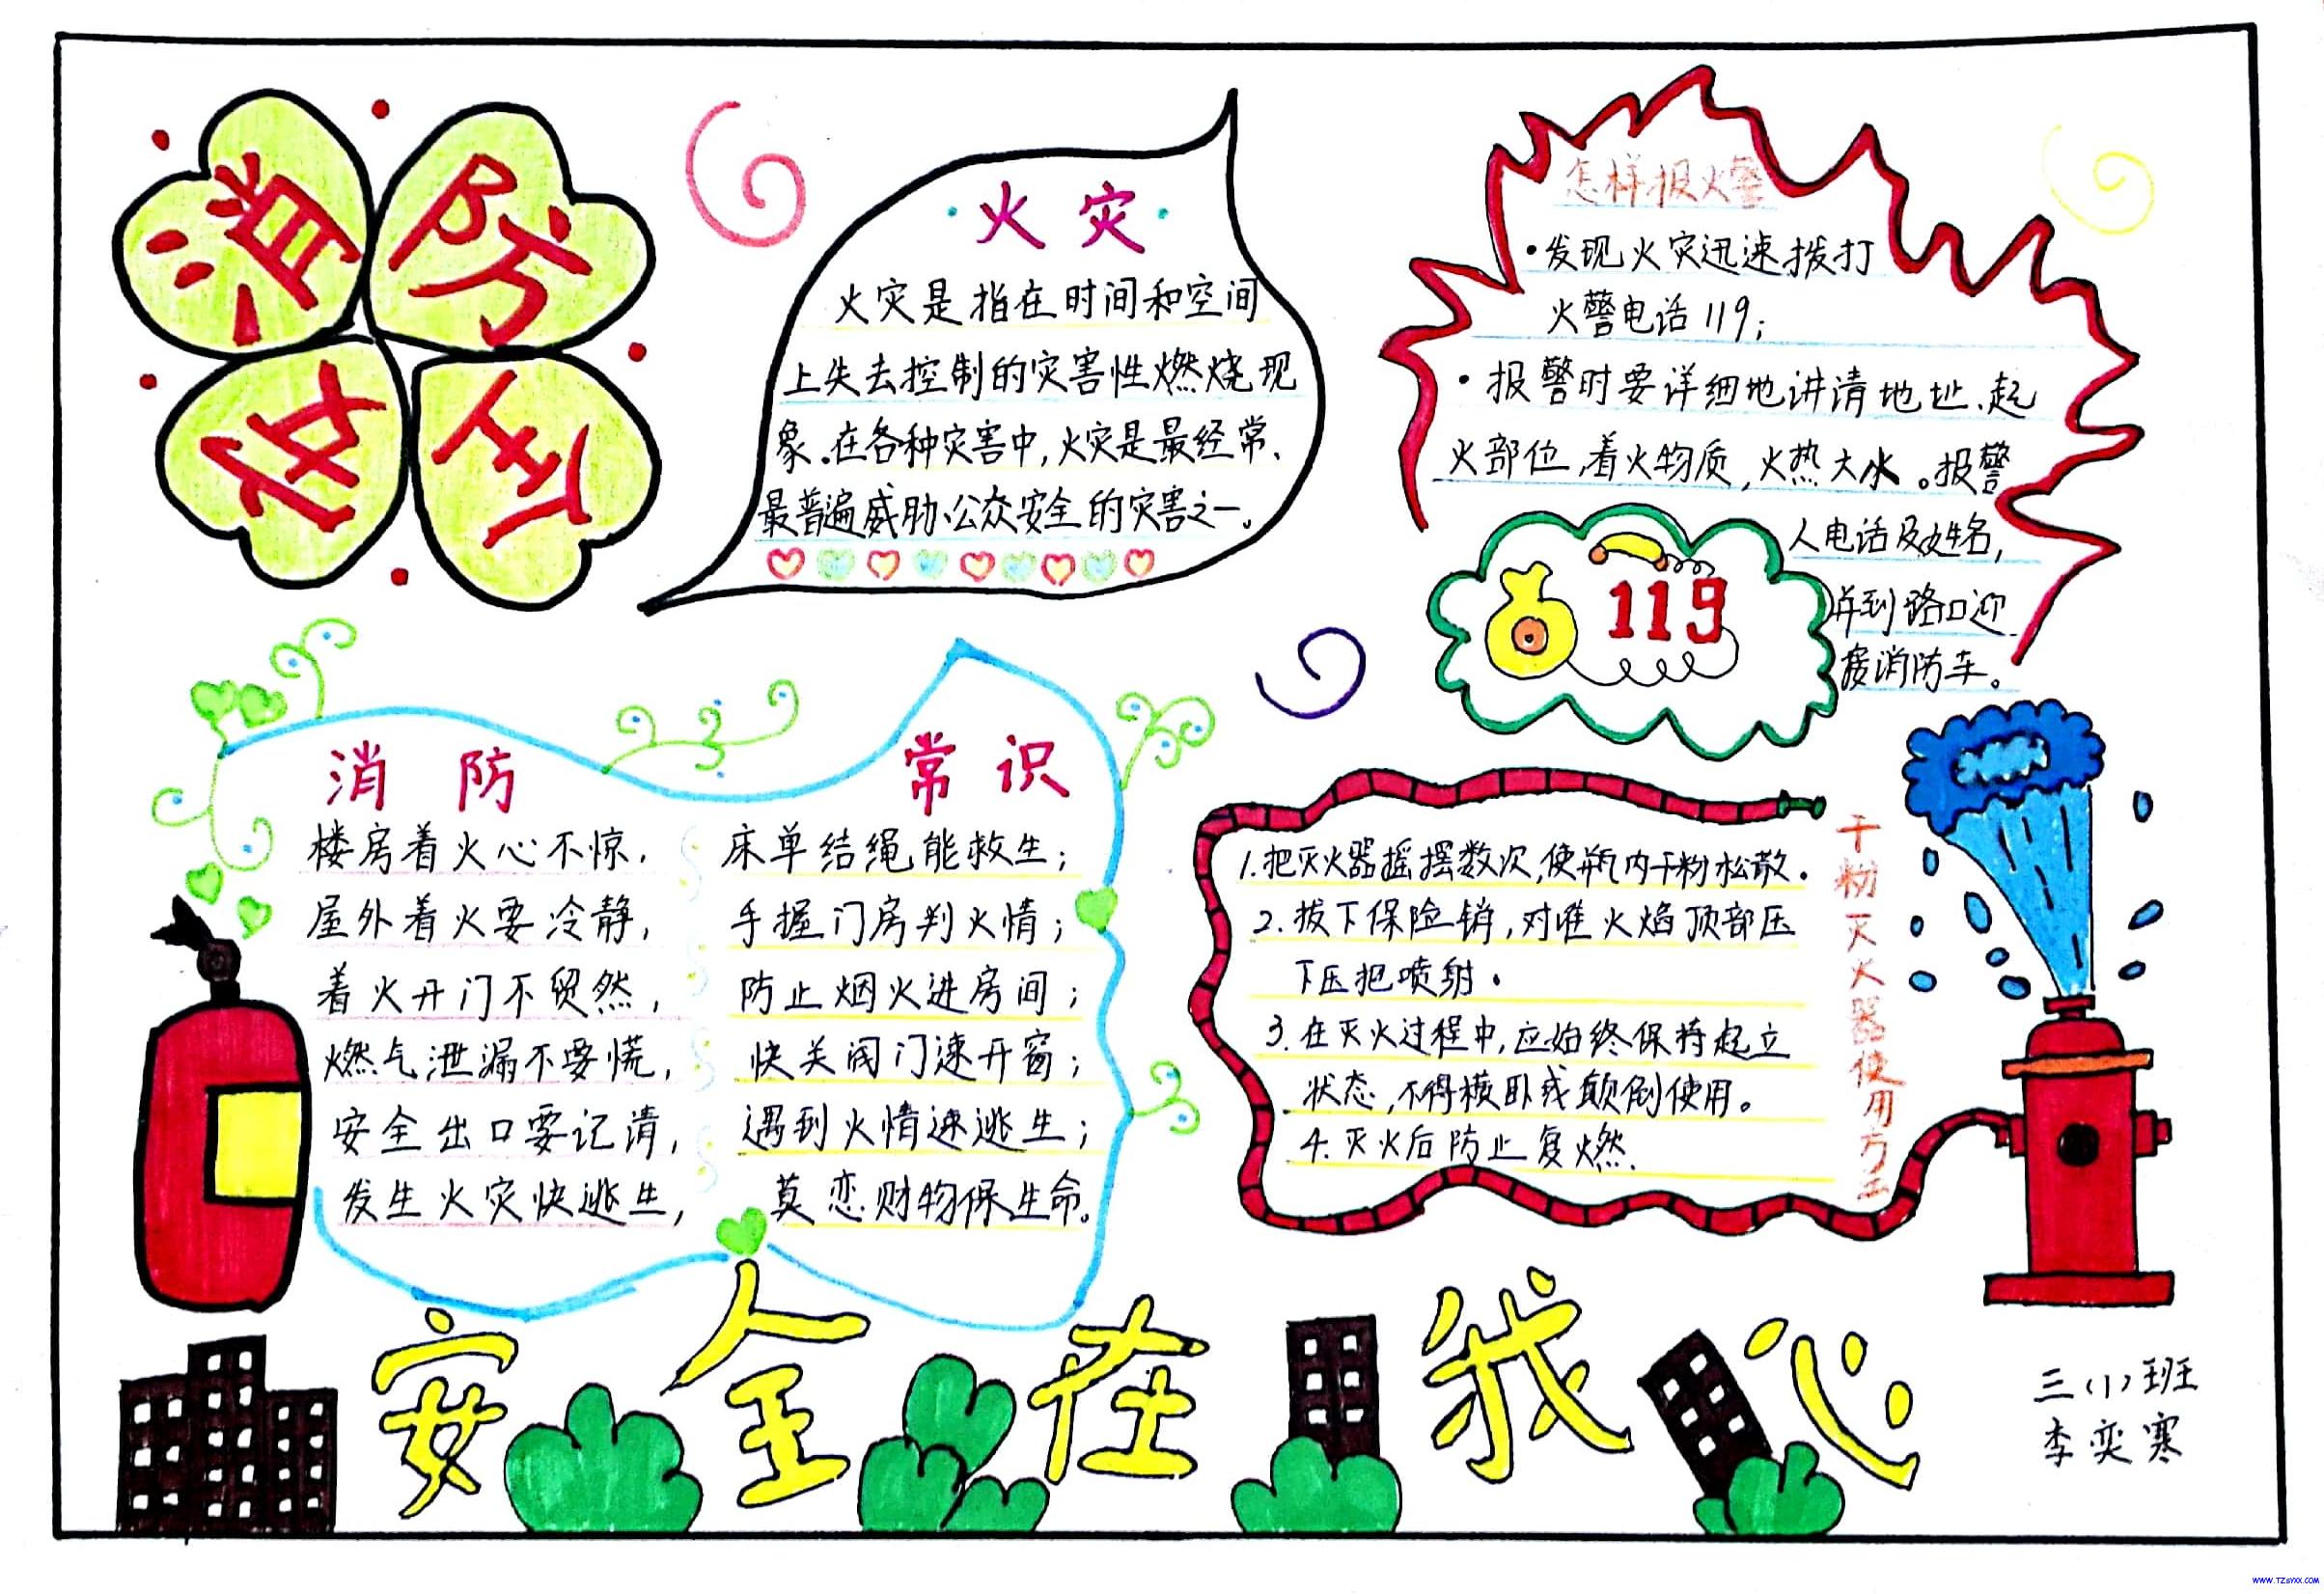 消防
安全
火灾
火灾是指在时间和空间
上失去控制的灾害性燃烧现
象。在各种灾害中,火灾是最经常、
最普遍威胁公众安全的灾害之一。
怎样报火警
·发现火灾迅速拨打
火警电话119;
·报警时要详细地讲清地址、起
火部位,着火物质,火热大水。报警
人电话及姓名,
并到路口迎
接消防车。
119
消防 常识
楼房着火心不惊, 床单结绳能救生;
屋外着火要冷静, 手握门房判火情;
着火开门不贸然, 防止烟火进房间;
燃气泄漏不要慌, 快关阀门速开窗;
安全出口要记清, 遇到火情速逃生;
发生火灾快逃生, 莫恋财物保生命。
干粉灭火器使用方
1.把灭火器摇摆数次,使瓶内干粉松散.
2.拔下保险销,对准火焰顶部压
下压把喷射.
3.在灭火过程中,应始终保持起立
状态,不得横卧或颠倒使用。
4.灭火后防止复燃.
安全在我心
三(1)班
李奕寒
WWW.TZSYXX.COM